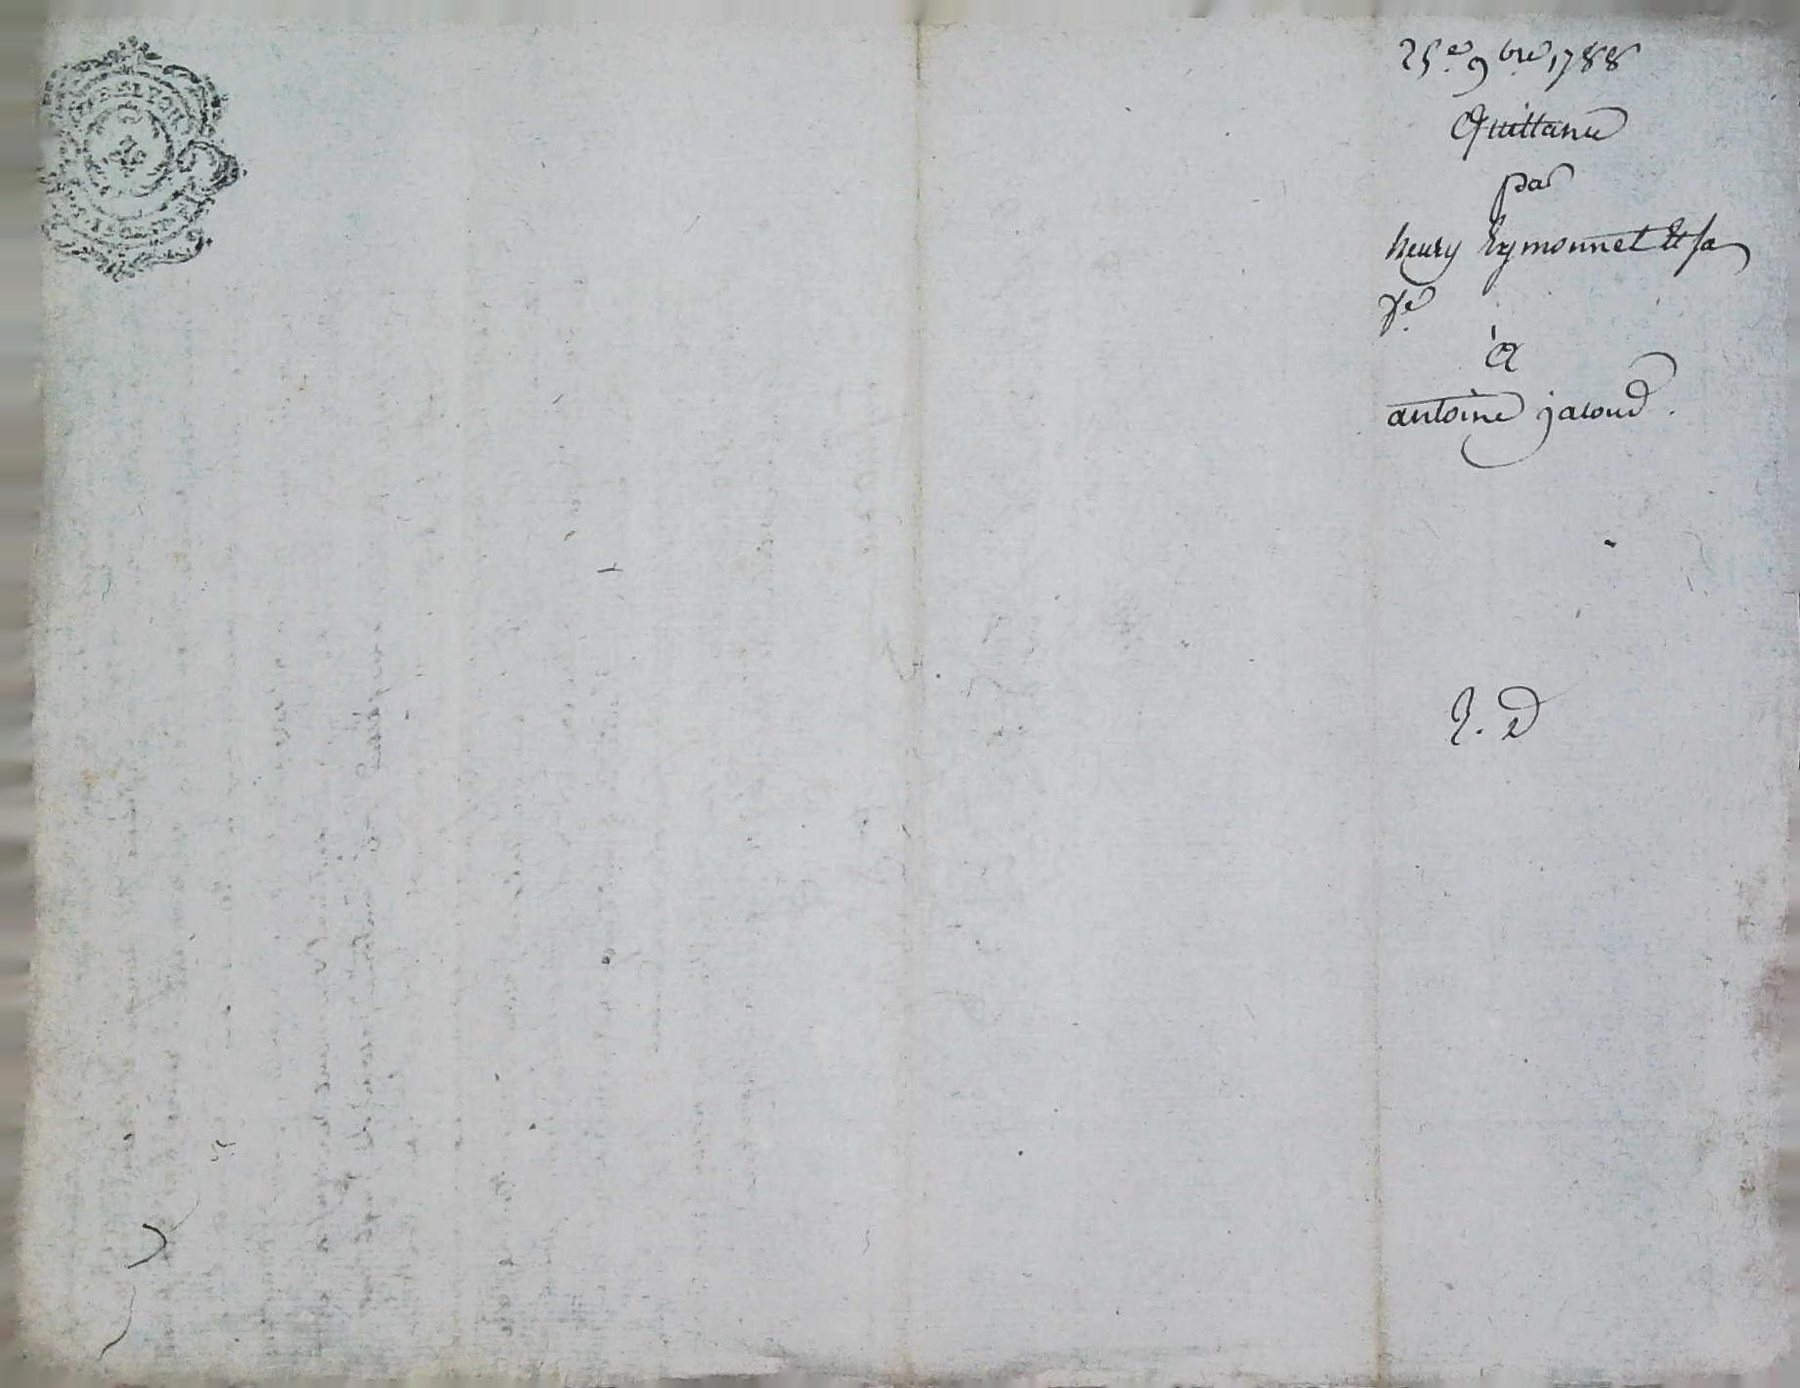 25.e 9bre 1788
Quittance
par
henry Eymonnet Et sa
fe.
à
antoine jacoud.
E. D